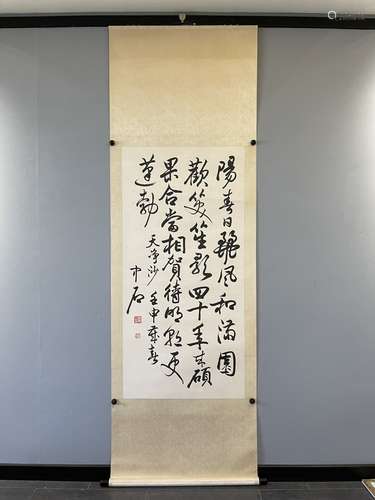 陽春日麗風和滿園
歡笑笙歌四十年來碩
果合當相賀待明朝更
蓬勃
天净沙 壬申歲春
中石